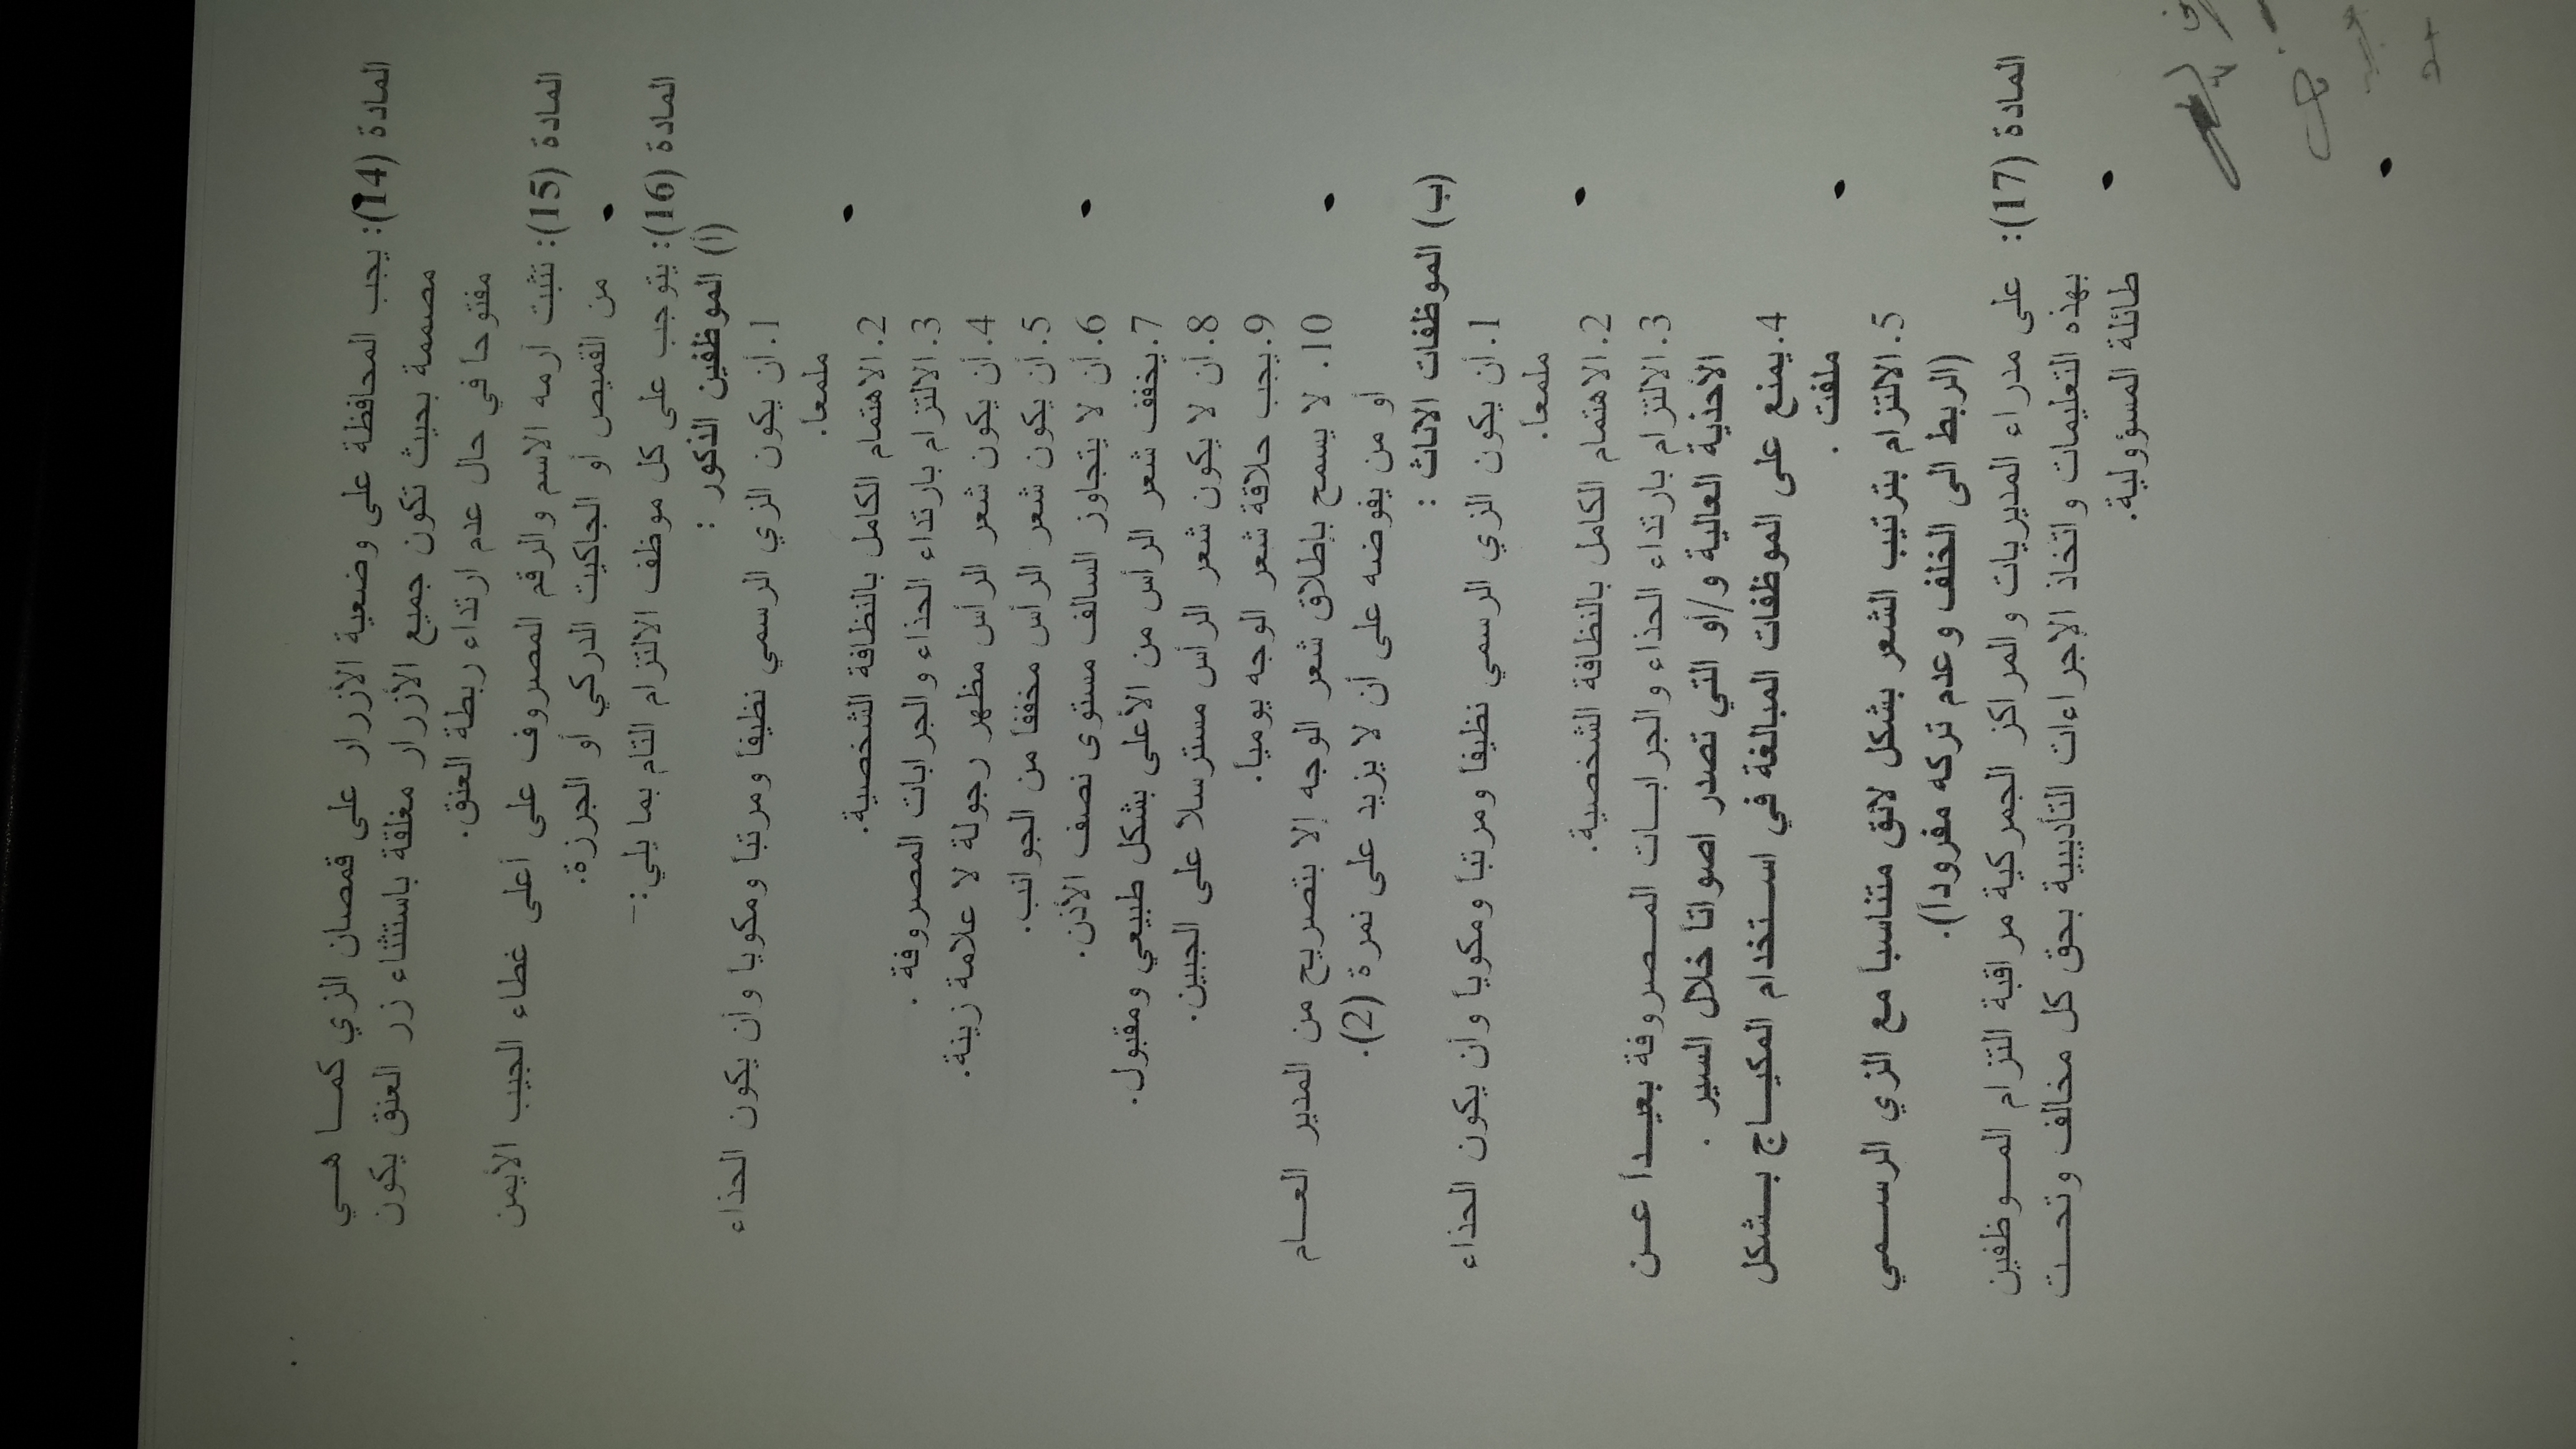 المادة (14): يجب المحافظة على وضعية الأزرار على قمصان الزي كما هي
مصممة بحيث تكون جميع الأزرار مغلقة باستثناء زر العنق يكون
مفتوحاً في حال عدم ارتداء ربطة العنق.
المادة (15): تثبت أرمه الاسم والرقم المصروف على أعلى غطاء الجيب الأيمن
من القميص أو الجاكيت الدركي أو الجرزة.
المادة (16): يتوجب على كل موظف الالتزام التام بما يلي:-
(أ) الموظفين الذكور :
1. أن يكون الزي الرسمي نظيفاً ومرتباً ومكوياً وأن يكون الحذاء
ملمعاً.
2. الاهتمام الكامل بالنظافة الشخصية.
3. الالتزام بارتداء الحذاء والجرابات المصروفة .
4. أن يكون شعر الرأس مظهر رجولة لا علامة زينة.
5. أن يكون شعر الرأس مخففاً من الجوانب.
6. أن لا يتجاوز السالف مستوى نصف الأذن.
7. يخفف شعر الرأس من الأعلى بشكل طبيعي ومقبول.
8. أن لا يكون شعر الرأس مسترسلا على الجبين.
9. يجب حلاقة شعر الوجه يومياً.
10. لا يسمح بإطلاق شعر الوجه إلا بتصريح من المدير العام
أو من يفوضه على أن لا يزيد على نمرة (2).
(ب) الموظفات الاناث :
1. أن يكون الزي الرسمي نظيفاً ومرتباً ومكوياً وأن يكون الحذاء
ملمعاً.
2. الاهتمام الكامل بالنظافة الشخصية.
3. الالتزام بارتداء الحذاء والجرابات المصروفة بعيداً عن
الأحذية العالية و/أو التي تصدر اصواتاً خلال السير .
4. يمنع على الموظفات المبالغة في استخدام المكياج بشكل
ملفت .
5. الالتزام بترتيب الشعر بشكل لائق متناسباً مع الزي الرسمي
(الربط الى الخلف وعدم تركه مفروداً).
المادة (17): على مدراء المديريات والمراكز الجمركية مراقبة التزام الموظفين
بهذه التعليمات واتخاذ الإجراءات التأديبية بحق كل مخالف وتحت
طائلة المسؤولية.